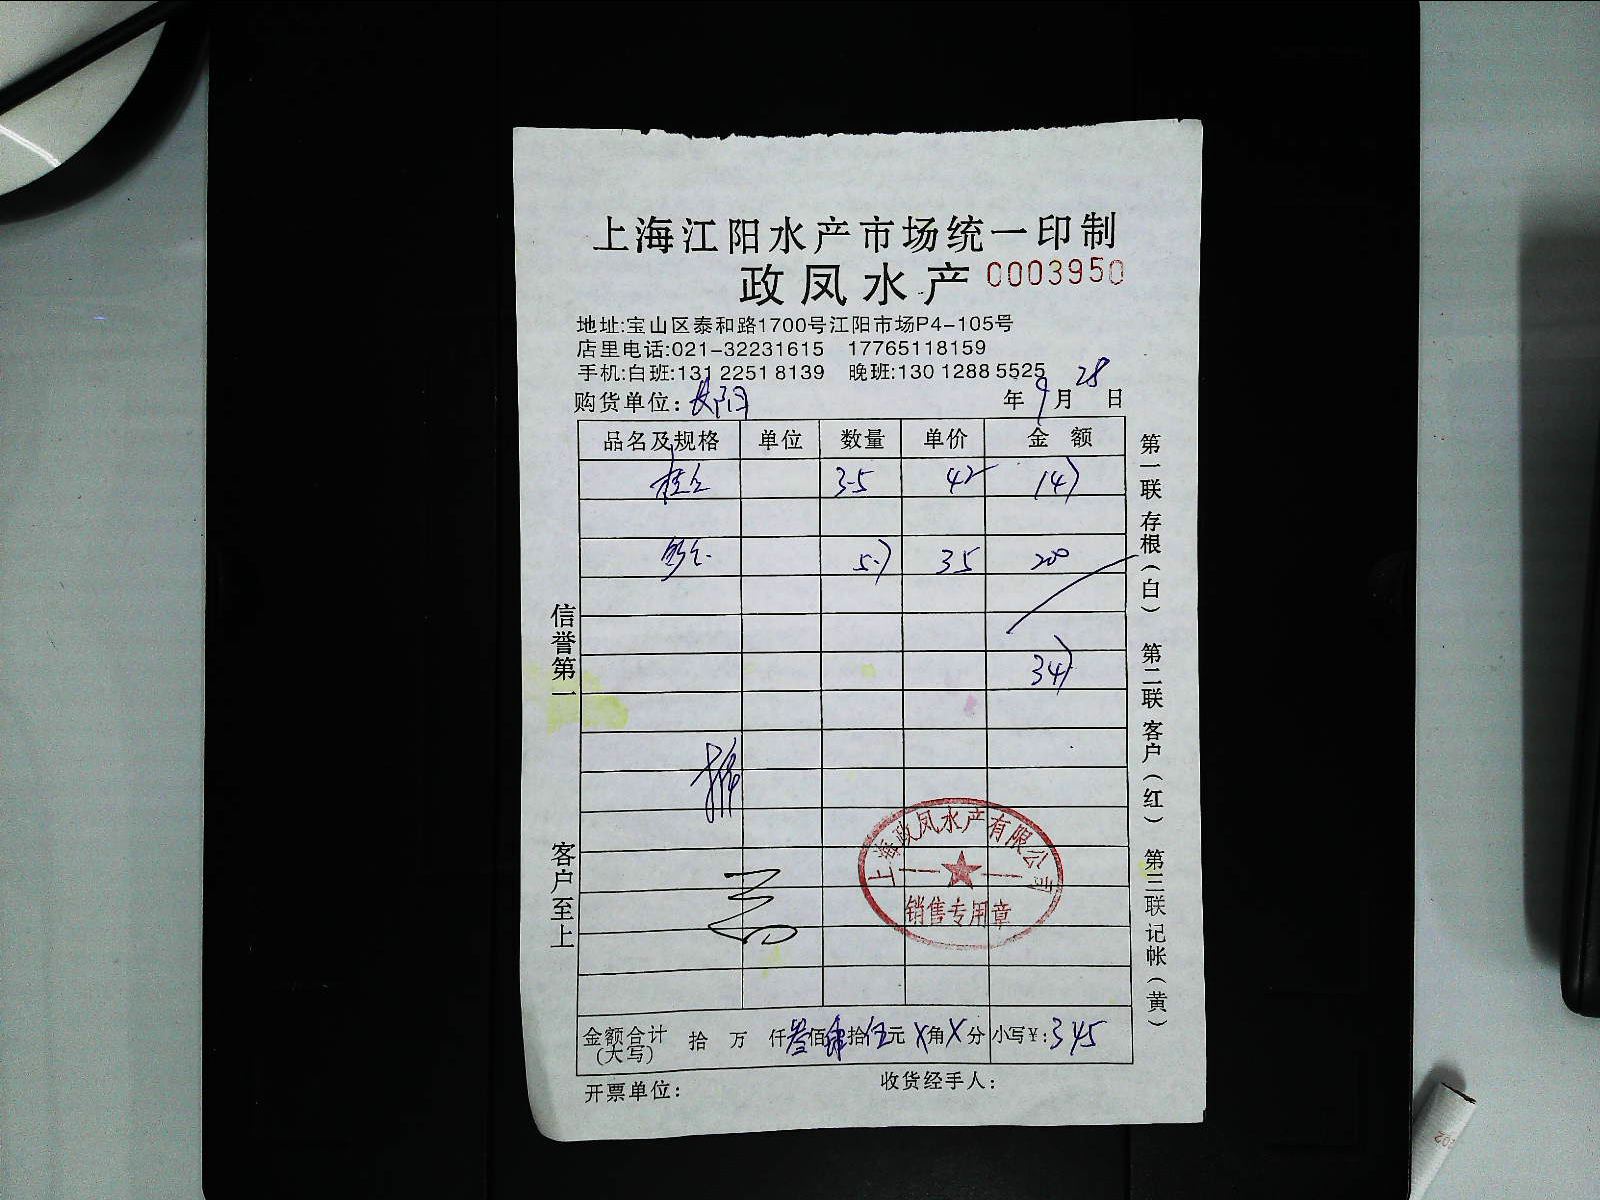 上海江阳水产市场统一印制
政凤水产 0003950
地址:宝山区泰和路1700号江阳市场P4-105号
店里电话:021-32231615 17765118159
手机:白班:131 2251 8139 晚班:130 1288 5525
购货单位: 长阳 年9月28日
品名及规格 单位 数量 单价 金额
桂鱼 3.5 42 147
鲈鱼 5.7 35 200
347
上海政凤水产有限公司
销售专用章
金额合计(大写) 拾 万 仟叁佰肆拾伍元X角X分 小写¥:345
开票单位: 收货经手人:
信誉第一
客户至上
第一联存根(白) 第二联客户(红) 第三联记帐(黄)